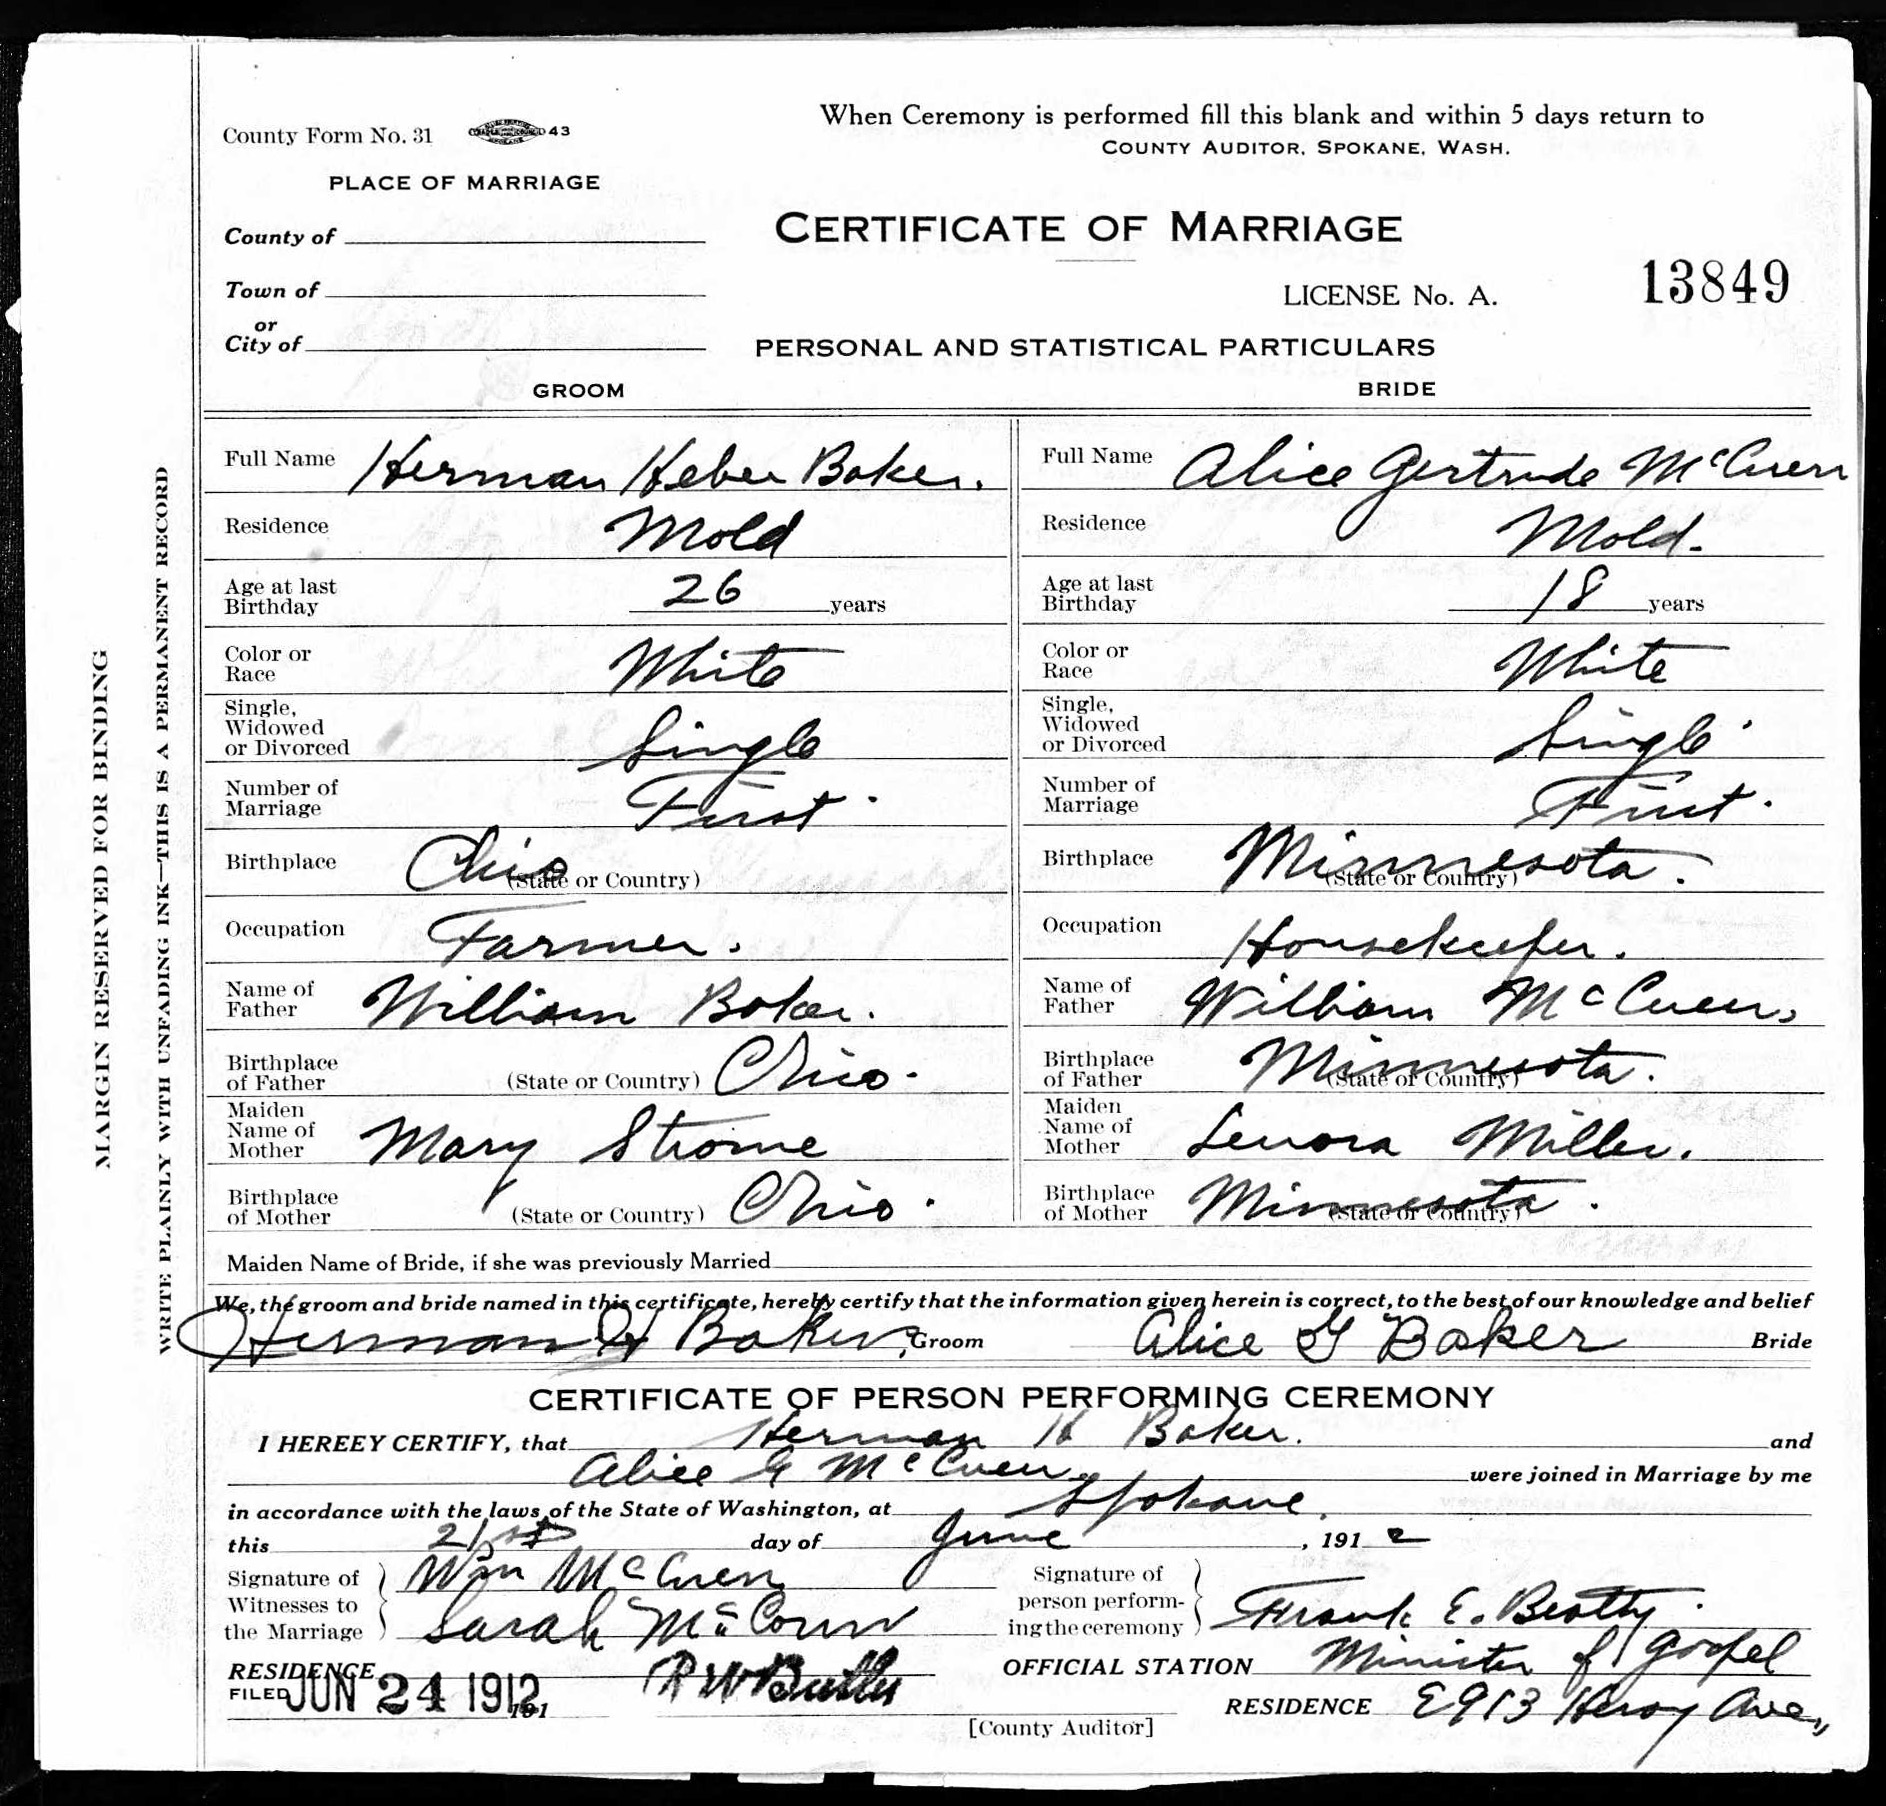 County Form No. 31 43
When Ceremony is performed fill this blank and within 5 days return to
COUNTY AUDITOR, SPOKANE, WASH.
PLACE OF MARRIAGE
County of
CERTIFICATE OF MARRIAGE
Town of
LICENSE No. A. 13849
or
City of
PERSONAL AND STATISTICAL PARTICULARS
GROOM BRIDE
Full Name Herman Heber Baker.
Residence Mold
Age at last Birthday 26 years
Color or Race White
Single, Widowed or Divorced Single
Number of Marriage First.
Birthplace Ohio (State or Country)
Occupation Farmer.
Name of Father William Baker.
Birthplace of Father (State or Country) Ohio.
Maiden Name of Mother Mary Strome
Birthplace of Mother (State or Country) Ohio.
Full Name Alice Gertrude McCuen
Residence Mold.
Age at last Birthday 18 years
Color or Race White
Single, Widowed or Divorced Single
Number of Marriage First.
Birthplace Minnesota. (State or Country)
Occupation Housekeeper.
Name of Father William McCuen.
Birthplace of Father Minnesota. (State or Country)
Maiden Name of Mother Lenora Miller.
Birthplace of Mother Minnesota. (State or Country)
Maiden Name of Bride, if she was previously Married
We, the groom and bride named in this certificate, hereby certify that the information given herein is correct, to the best of our knowledge and belief
Herman H Baker, Groom Alice G Baker Bride
CERTIFICATE OF PERSON PERFORMING CEREMONY
I HEREEY CERTIFY, that Herman H Baker. and
Alice G McCuen were joined in Marriage by me
in accordance with the laws of the State of Washington, at Spokane,
this 21st day of June, 1912
Signature of Witnesses to the Marriage
Wm McCuen
Sarah McCoun
Signature of person performing the ceremony Frank E. Beatty.
RESIDENCE
OFFICIAL STATION Minister of Gospel
FILED JUN 24 1912 191
R W Butler
[County Auditor]
RESIDENCE E913 Heroy Ave.,
MARGIN RESERVED FOR BINDING
WRITE PLAINLY WITH UNFADING INK—THIS IS A PERMANENT RECORD